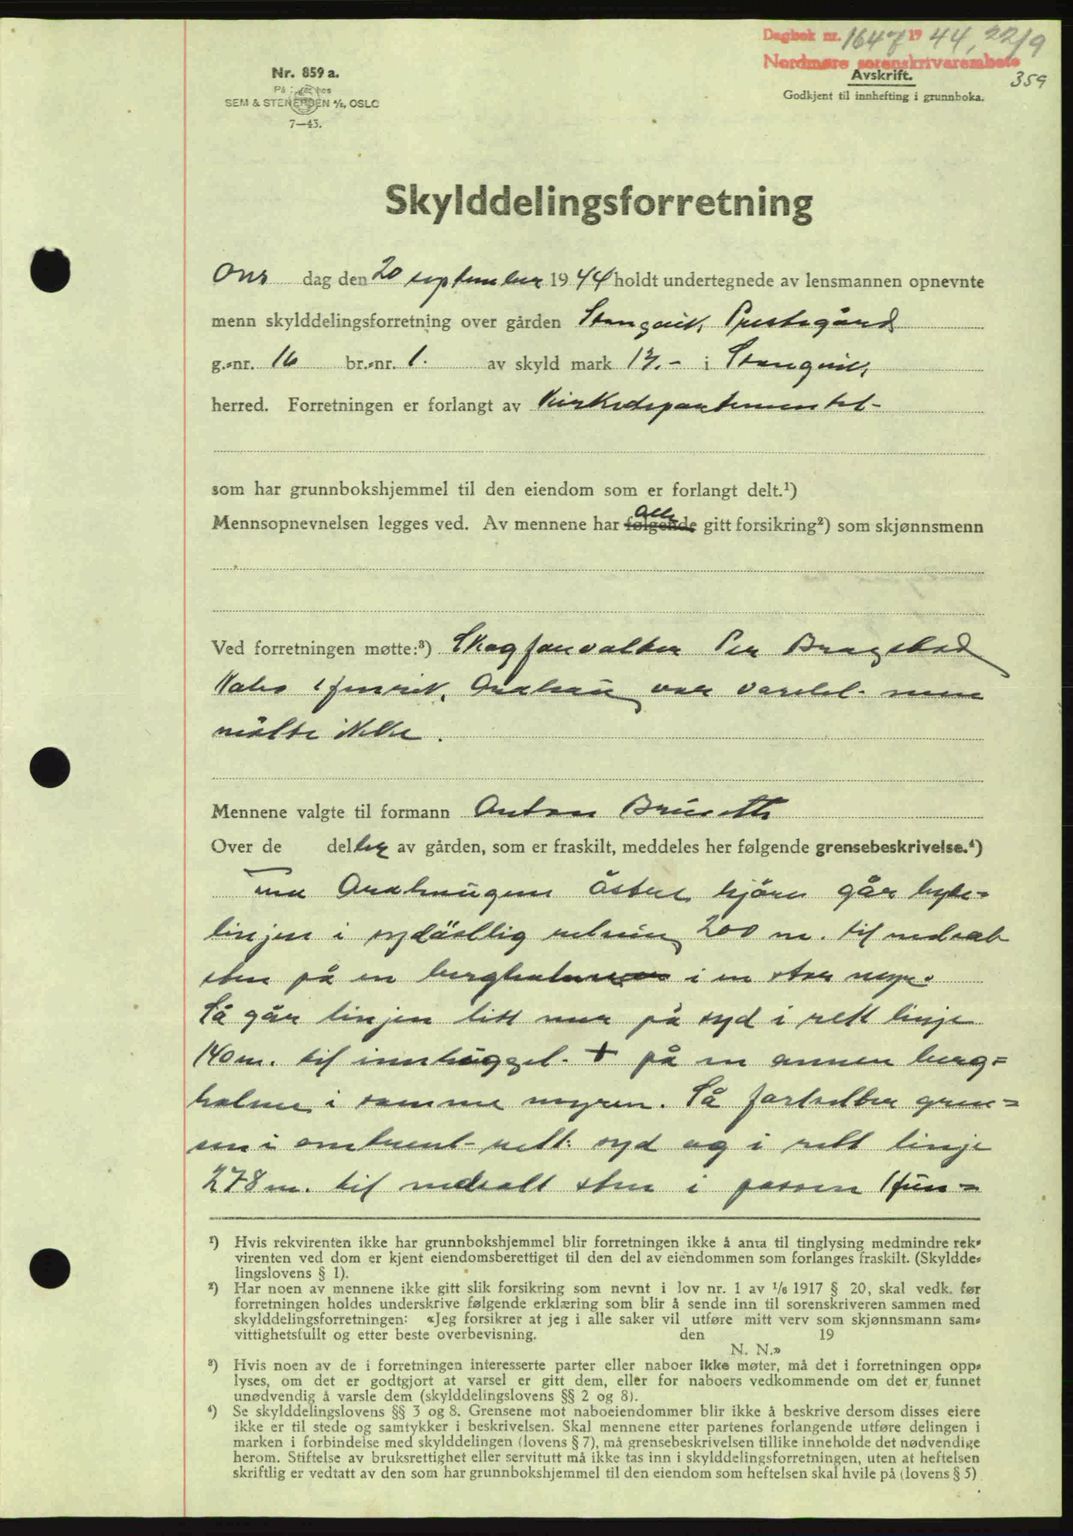 Dagbok nr. 1647 19 44, 22/9
Nordmøre sorenskriverembete
359
Nr. 859 a.
SEM & STENERSEN A/S, OSLO
7—43.
Avskrift.
Godkjent til innhefting i grunnboka.
Skylddelingsforretning
Ons dag den 20 september 1944 holdt undertegnede av lensmannen opnevnte
menn skylddelingsforretning over gården Stangvik Prestegård
g.-nr. 16 br.-nr. 1. av skyld mark 17.- i Stangvik,
herred. Forretningen er forlangt av Kirkedepartementet-
som har grunnbokshjemmel til den eiendom som er forlangt delt.¹)
Mennsopnevnelsen legges ved. Av mennene har følgende alle gitt forsikring²) som skjønnsmenn
Ved forretningen møtte:³) Skogforvalter Per Bragstad
Nabo Arahaug var varslet men
møtte ikke.
Mennene valgte til formann Anton
Over de del av gården, som er fraskilt, meddeles her følgende grensebeskrivelse.⁴)
østre hjørne går byte=
linjen i sydøstlig retning 200 m. til nedsatt
sten på en bergholme i en stor myr.
Så går linjen litt mer på syd i rett linje
140 m. til innhugget + på en annen berg=
holme i samme myren. Så fortsetter gren=
sen i omtrent rett syd og i rett linje
278 m. til nedsatt sten i
¹) Hvis rekvirenten ikke har grunnbokshjemmel blir forretningen ikke å anta til tinglysing medmindre rek-
virenten ved dom er kjent eiendomsberettiget til den del av eiendommen som forlanges fraskilt. (Skyldde-
lingslovens § 1).
²) Har noen av mennene ikke gitt slik forsikring som nevnt i lov nr. 1 av 1/6 1917 § 20, skal vedk. før
forretningen holdes underskrive følgende erklæring som blir å sende inn til sorenskriveren sammen med
skylddelingsforretningen: «Jeg forsikrer at jeg i alle saker vil utføre mitt verv som skjønnsmann sam-
vittighetsfullt og etter beste overbevisning. den 19
N. N.»
³) Hvis noen av de i forretningen interesserte parter eller naboer ikke møter, må det i forretningen opp-
lyses, om det er godtgjort at varsel er gitt dem, eller for naboers vedkommende om det er funnet
unødvendig å varsle dem (skylddelingslovens §§ 2 og 8).
⁴) Se skylddelingslovens §§ 3 og 8. Grensene mot naboeiendommer blir ikke å beskrive dersom disses eiere
ikke er til stede og samtykker i beskrivelsen. Skal mennene etter partenes forlangende utføre delingen i
marken i forbindelse med skylddelingen (lovens § 7), må grensebeskrivelsen tillike inneholde det nødvendige
herom. Stiftelse av bruksrettighet eller servitutt må ikke tas inn i skylddelingsforretningen, uten at heftelsen
skriftlig er vedtatt av den som har grunnbokshjemmel til den eiendom som heftelsen skal hvile på (lovens § 5)